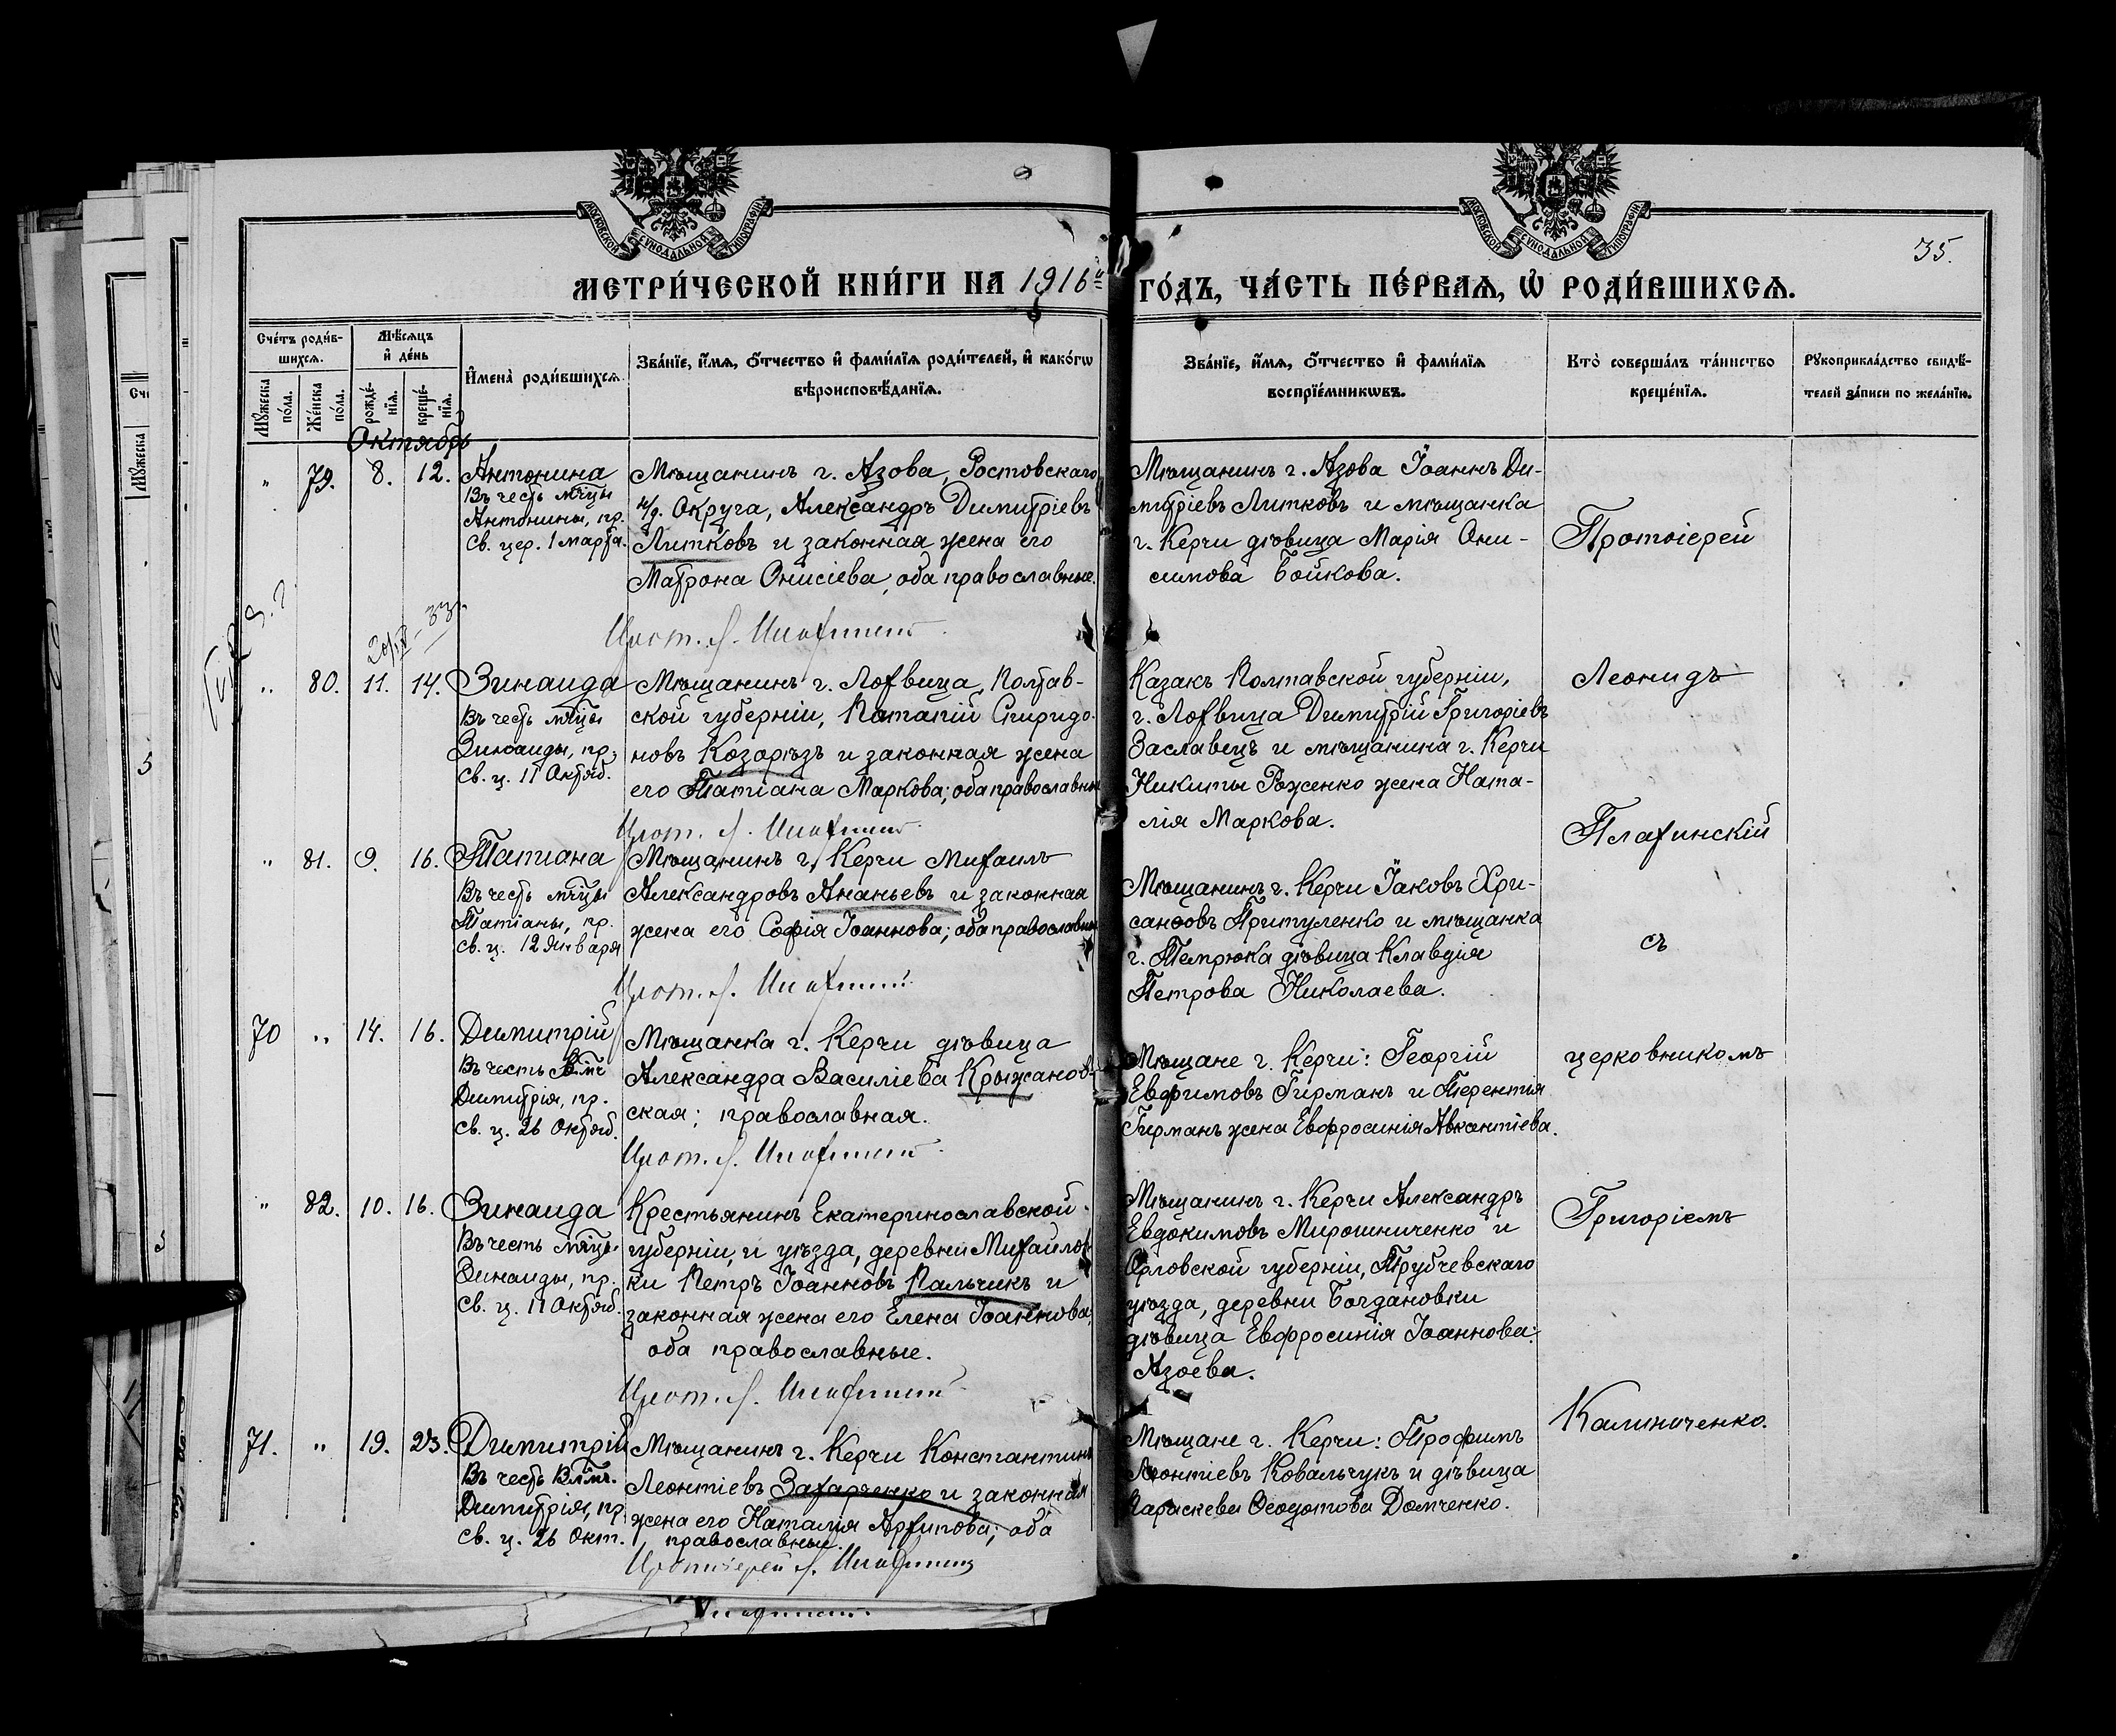 МОСКОВСКОЙ СѴНОДАЛЬНОЙ ТИПОГРАФІИ
МОСКОВСКОЙ СѴНОДАЛЬНОЙ ТИПОГРАФІИ
35.
МЕТРИ́ЧЕСКОЙ КНИ́ГИ НА 1916й ГО́ДЪ, ЧА́СТЬ ПЕ́РВАЯ, Ѡ РОДИ́ВШИХСЯ.
Сче́тъ роди́в-
шихся.
Мѣ́сяцъ
и де́нь
Мꙋ́жеска по́ла.
Же́нска по́ла.
рожде́-нїя.
креще́-нїя.
Имена̀ роди́вшихся.
Зва́нїе, и́мя, ѻ́тчество и фами́лїя роди́телей, и како́гѡ
вѣроисповѣ́данїя.
Зва́нїе, и́мя, ѻ́тчество и фами́лїя
воспрїе́мникѡвъ.
Кто̀ соверша́лъ та́инство
креще́нїя.
Рꙋкоприкла́дство свидѣ́-
телей за́писи по жела́нїю.
Октябрь
" 79. 8. 12. Антонина
Въ честь мч̃цы
Антонины, пр.
св. цер. 1 марта.
Мѣщанинъ г. Азова, Ростовскаго
н/Д. Округа, Александръ Димитріевъ
Литковъ и законная жена его
Матрона Онисіева, оба православные.
Мѣщанинъ г. Азова Іоаннъ Ди-
митріевъ Литковъ и мѣщанка
г. Керчи дѣвица Марія Они-
симова Бойкова.
Протоіерей
20/IV-33
" 80. 11. 14. Зинаида
Въ честь мч̃цы
Зинаиды, пр.
св. ц. 11 Октяб.
Мѣщанинъ г. Лохвица, Полтав-
ской губерніи, Потапій Спиридо-
новъ Козорѣзъ и законная жена
его Татіана Маркова; оба православные
Казакъ Полтавской губерніи,
г. Лохвица Димитрій Григоріевъ
Заславецъ и мѣщанина г. Керчи
Никиты Роженко жена Ната-
лія Маркова.
Леонидъ
" 81. 9. 16. Татіана
Въ честь мч̃цы
Татіаны, пр.
св. ц. 12 Января
Мѣщанинъ г. Керчи Михаилъ
Александровъ Ананьевъ и законная
жена его Софія Іоаннова; оба православные
Мѣщанинъ г. Керчи Іаковъ Хри-
санѳовъ Притуленко и мѣщанка
г. Темрюка дѣвица Клавдія
Петрова Николаева.
Плахинскій
съ
70 " 14. 16. Димитрій
Въ честь
Димитрія, пр.
св. ц. 26 Октяб.
Мѣщанка г. Керчи дѣвица
Александра Василіева Крыжанов-
ская; православная.
Мѣщане г. Керчи: Георгій
Евфимовъ Гирманъ и Терентія
Гирманъ жена Евфросинія Авксентіева.
церковникомъ
" 82. 10. 16. Зинаида
Въ честь мч̃цы
Зинаиды, пр.
св. ц. 11 Октяб.
Крестьянинъ Екатеринославской
губерніи, и уѣзда, деревни Михайлов-
ки Петръ Іоанновъ Пальчикъ и
законная жена его Елена Іоаннова,
оба православные.
Мѣщанинъ г. Керчи Александръ
Евдокимовъ Мирошниченко и
Орловской губерніи, Трубчевскаго
уѣзда, деревни Богдановки
дѣвица Евфросинія Іоаннова
Азоева.
Григоріемъ
71. " 19. 23. Димитрій
Въ честь Влмч.
Димитрія, пр.
св. ц. 26 Окт.
Мѣщанинъ г. Керчи Константинъ
Леонтіевъ Захарченко и законная
жена его Наталія Архипова; оба
православные.
Мѣщане г. Керчи: Трофимъ
Леонтіевъ Ковальчукъ и дѣвица
Параскева Ѳеодотова Домченко.
Калиниченко.